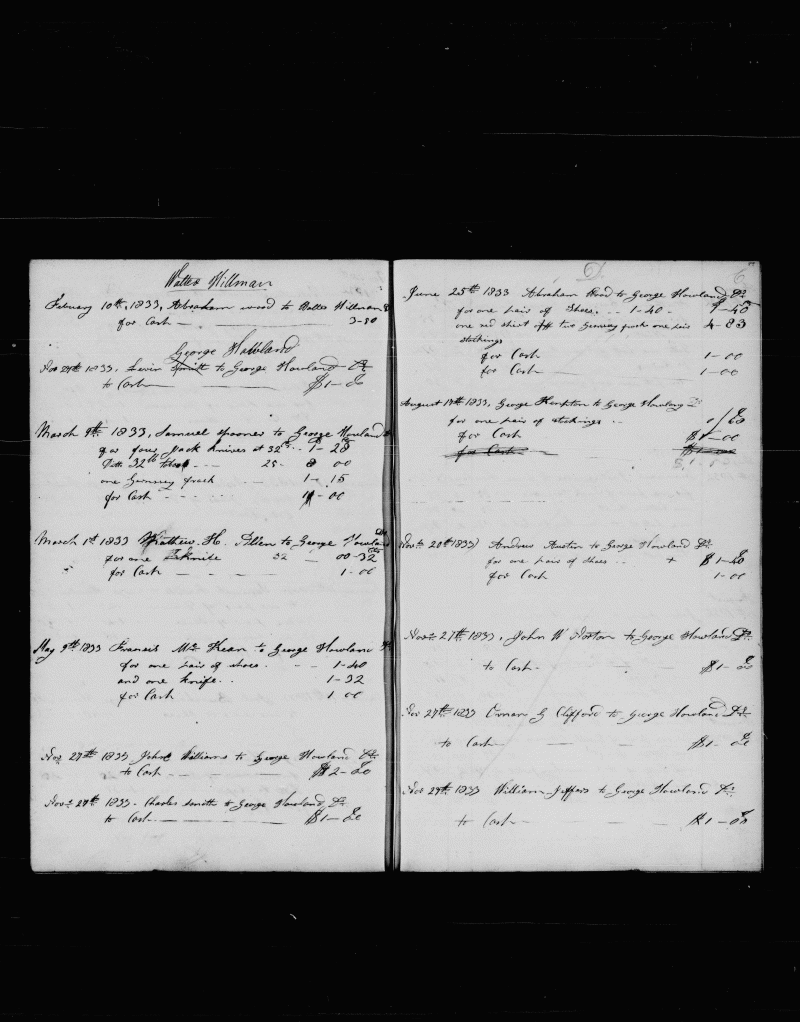 Walter Hillman
February 10th, 1833, Abraham wood to Walter Hillman
for Cash 3-80
George Howland
Nov 29th 1833, Levin Smith to George Howland Dr
to Cash $1-00
March 9th 1833, Samuel Spooner to George Howland
for four Jack Knives at 32 cts 1-28
Ditto 32 25- 8 00
one Gurnsey frock 1- 15
for Cash 1-00
March 1st 1833 Mathew. H. Allen to George Howland
for one Knife 32 00-32
for Cash 1-00
May 9th 1833 Francis Mc Kean to George Howland
for one pair of shoes 1-40
and one knife 1-32
for Cash 1 00
Nov 27th 1833 John Williams to George Howland Dr
to Cash $2-00
Nov 29th 1833. Charles Smith to George Howland, Dr
to Cash $1-00
D. 6
June 25th 1833 Abraham Wood to George Howland Dr
for one pair of Shoes. 1-40 1-40
one red shirt two pair 4-83
stockings
for Cash 1-00
for Cash 1-00
August 19th 1833, George Kempton to George Howland Dr
for one pair of stockings
for Cash $1-00
for Cash
Nov 20th 1833 Andrew Austin to George Howland Dr
for one pair of Shoes + $1-40
for Cash 1-00
Nov 27th 1833, John W Norton to George Howland Dr
to Cash $1-00
Nov 27th 1833 G Clifford to George Howland Dr
to Cash $1-00
Nov 29th 1833 William Jeffars to George Howland Dr
to Cash $1-00